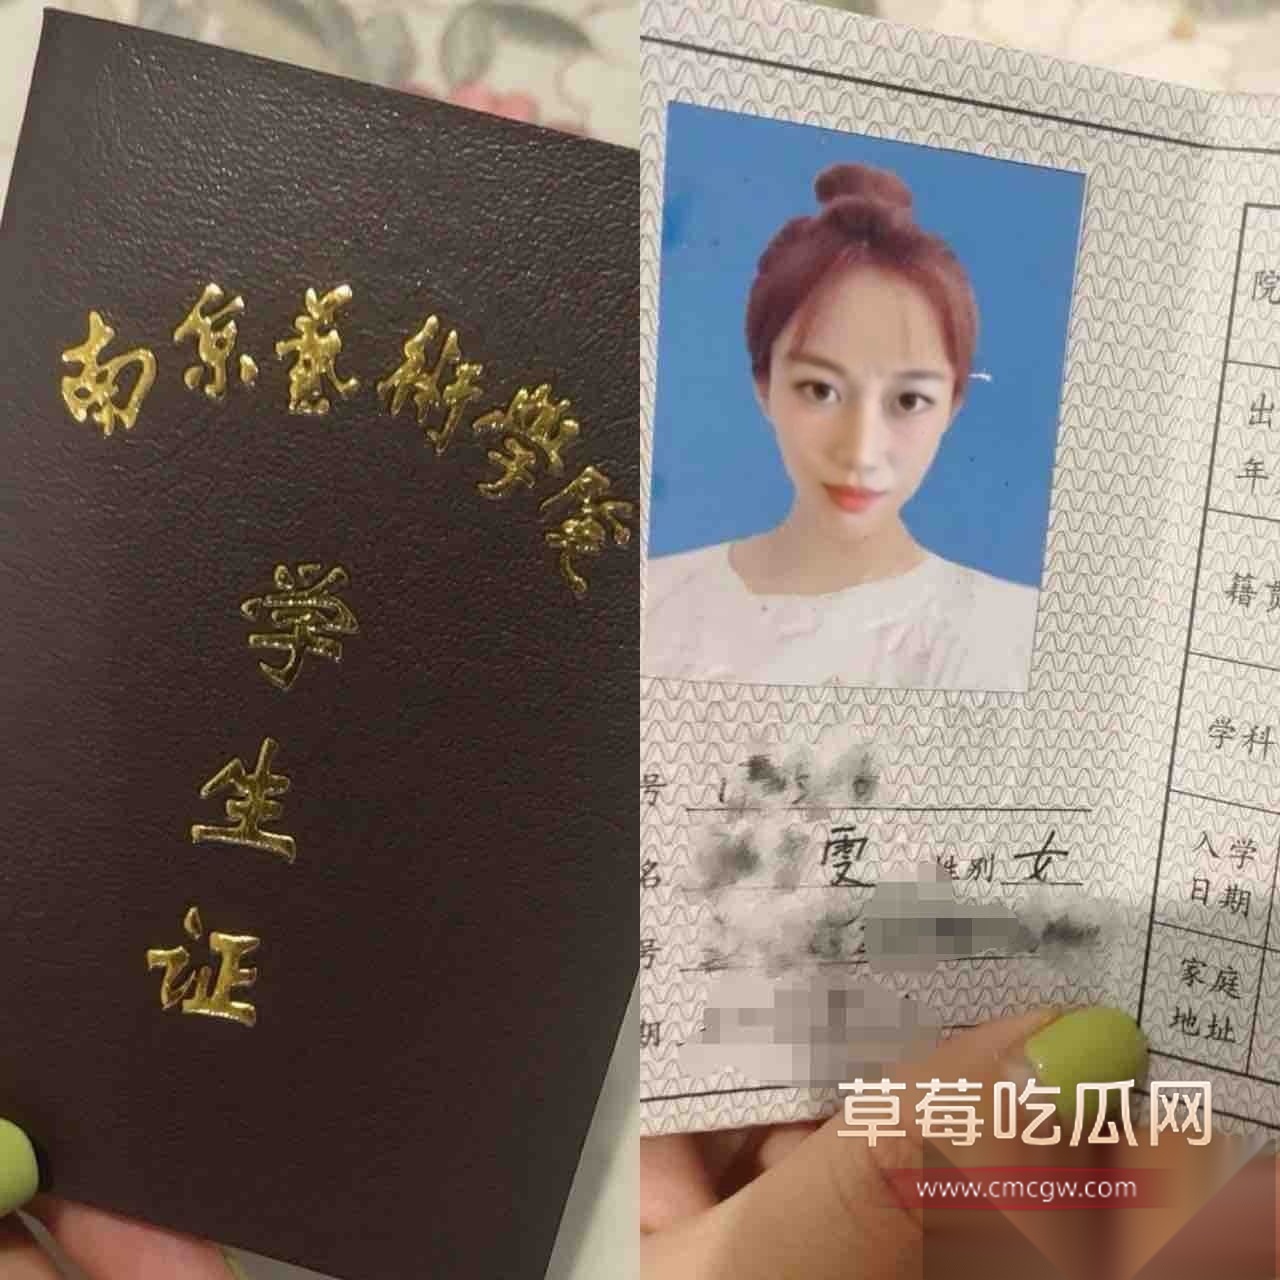 南京藝術學院
学
生
证
号
名 雯 性别 女
号
期
院
出
年
籍贯
学科
入学
日期
家庭
地址
草莓吃瓜网
www.cmcgw.com